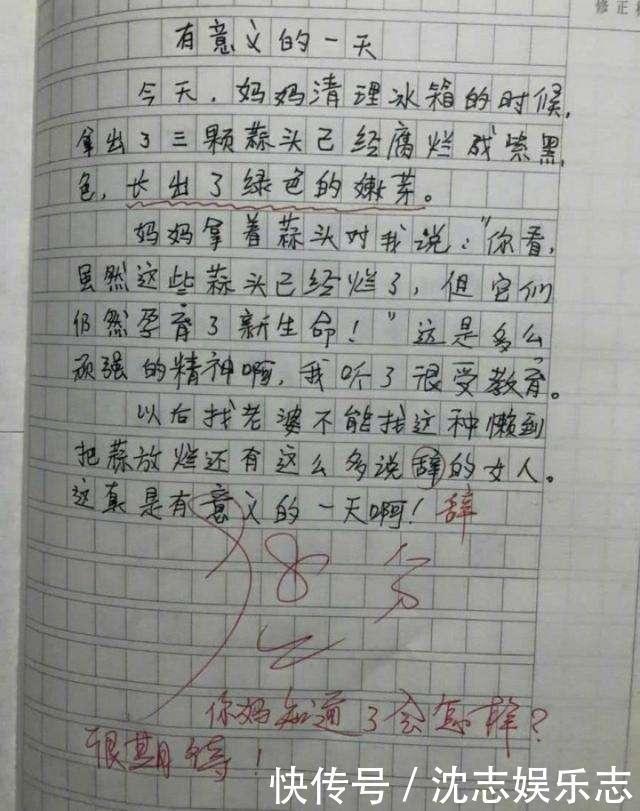 修正
有意义的一天
今天，妈妈清理冰箱的时候，
拿出了三颗蒜头已经腐烂成紫黑
色，长出了绿色的嫩芽。
妈妈拿着蒜头对我说："你看，
虽然这些蒜头已经烂了，但它们
仍然孕育了新生命！"这是多么
顽强的精神啊，我听了很受教育。
以后找老婆不能找这种懒到
把蒜放烂还有这么多说辞的女人。
这真是有意义的一天啊！辞
8分
你妈知道了会怎样？
很期待！
快传号／沈志娱乐志